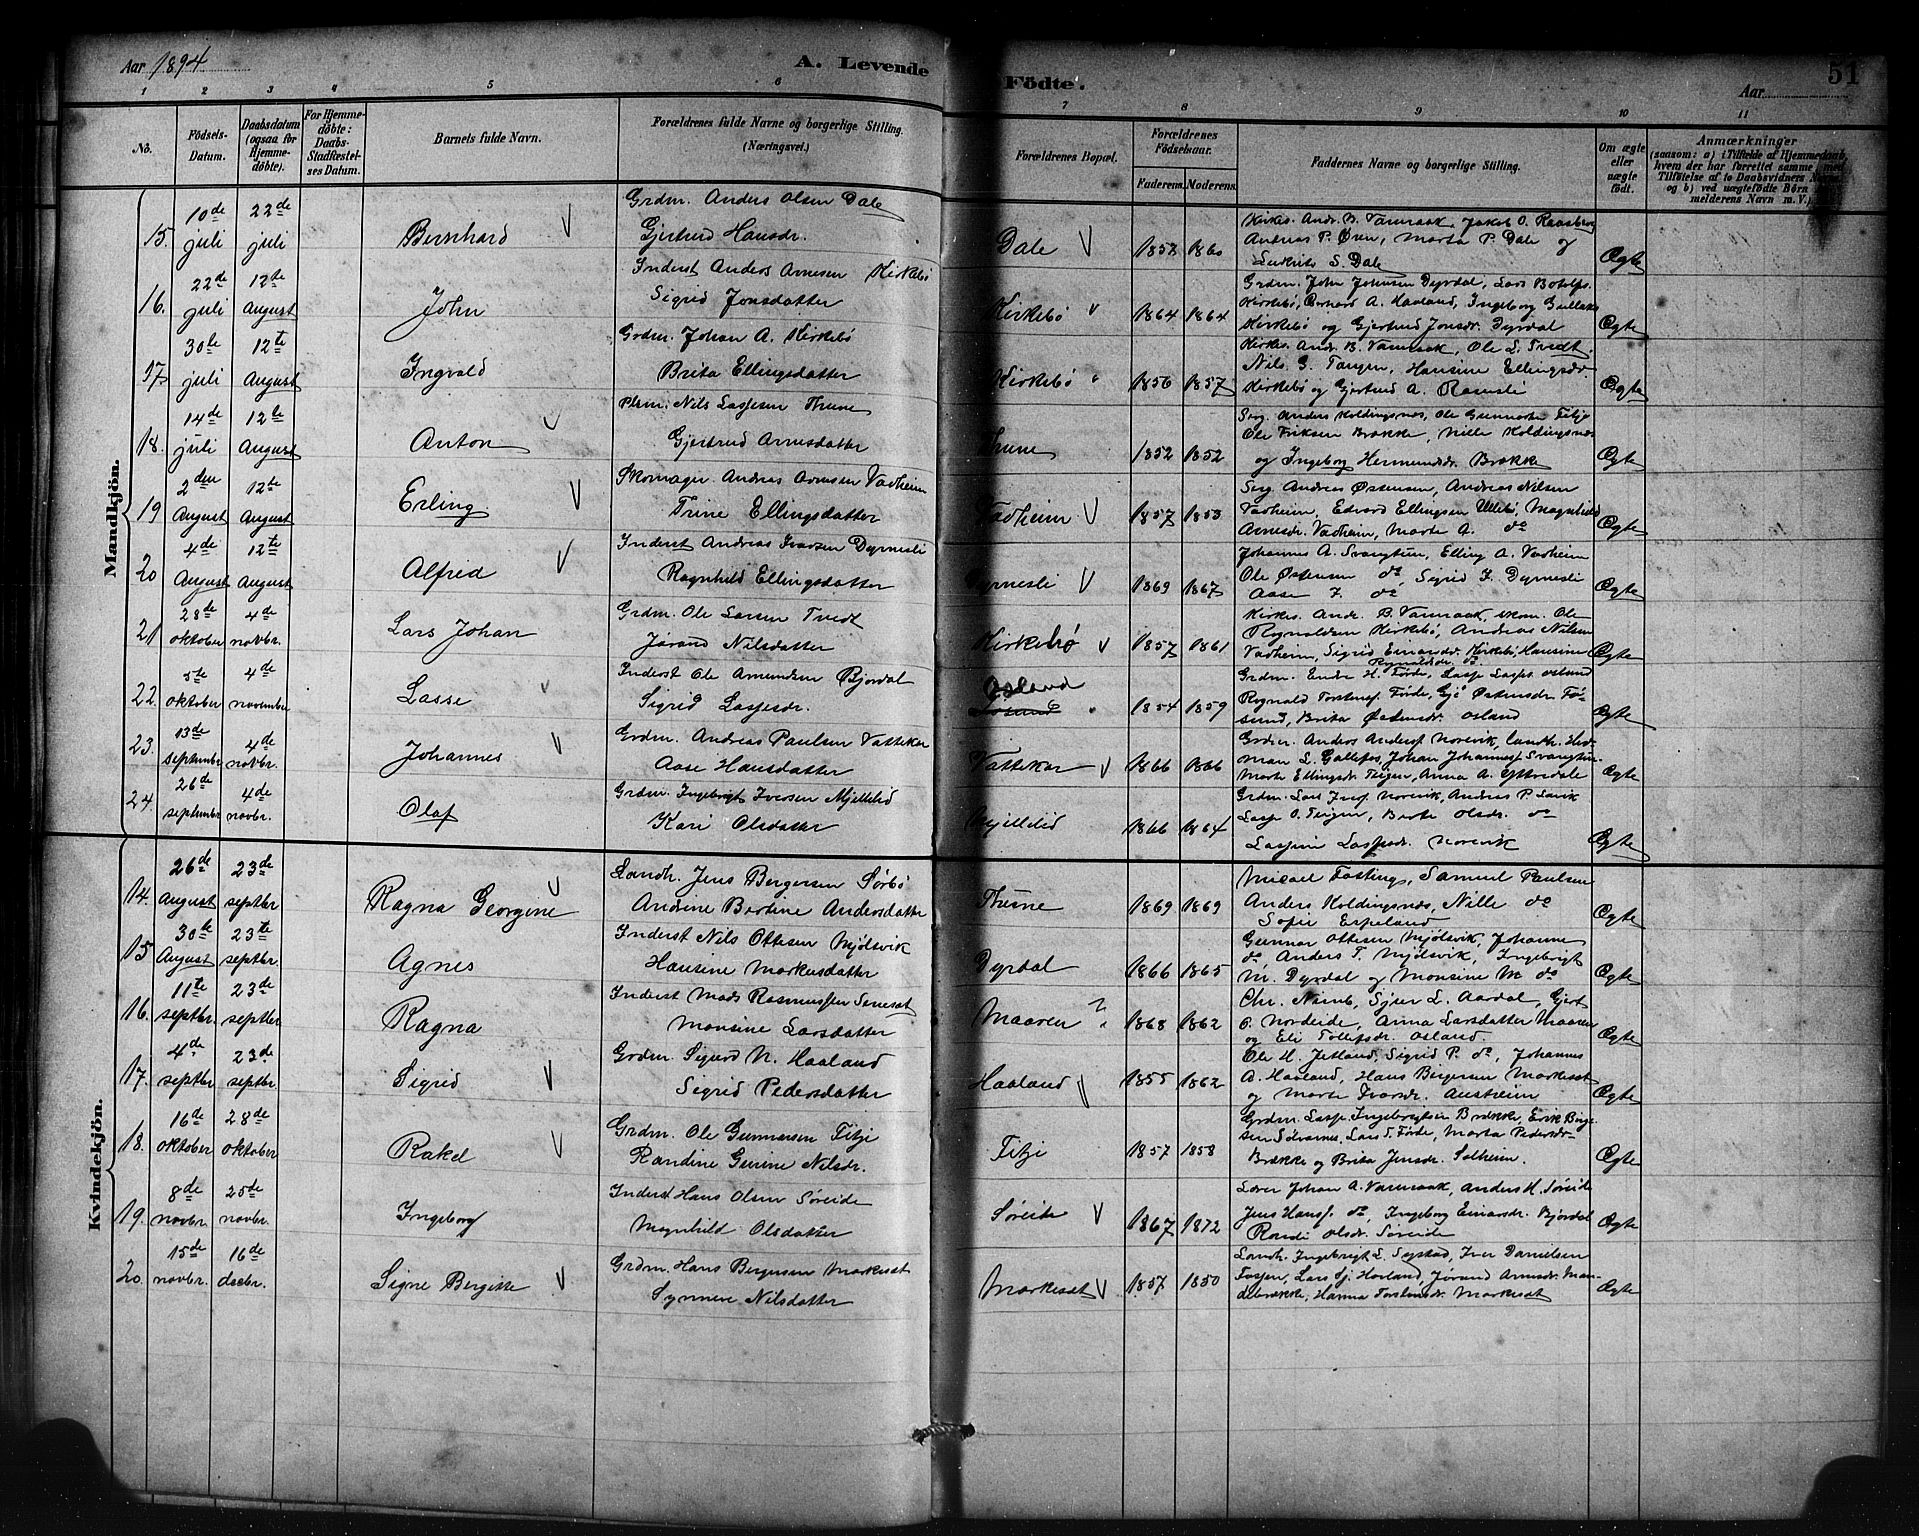 Aar 1894
A. Levende
Födte.
51
Aar
1 2 3 4 5 6 7 8 9 10 11
No.
Födsels-Datum.
Daabsdatum (ogsaa for Hjemmedöbte).
For Hjemmedöbte: Daabs-Stadfæstelses Datum.
Barnets fulde Navn.
Forældrenes fulde Navne og borgerlige Stilling.
(Næringsvei.)
Forældrenes Bopæl.
Forældrenes Födselsaar.
Faderens. Moderens.
Faddernes Navne og borgerlige Stilling.
Om ægte eller uægte födt.
Anmærkninger
(saasom: a) i Tilfælde af Hjemmedaab, hvem der har forrettet samme, med Tilföielse af to Daabsvidners Navne, og b) ved uægtefödte Börn melderens Navn m. V.).
Mandkjön.
15. 10de juli 22de juli Bernhard Grdm. Anders Olsen Dale
Gjertrud Hansdr. Dale 1857 1860 Kirkes. Andr. B. Vamraak, Jakob O.
Andreas P. Øren, Marta P. Dale og
S. Dale Ægte
16. 22de juli 12te August John Inderst Anders Arnesen Kirkebø
Sigrid Jonsdatter Kirkebø 1864 1864 Grdm. John Johnsen Dyrdal, Lars Botolfs.
Kirkebø, A. Haaland, Ingeborg Gullaks
Kirkebø og Gjertrud Jonsdr. Dyrdal Ægte
17. 30te juli 12te August Ingvald Grdm. Johan A. Kirkebø
Brita Ellingsdatter Kirkebø 1856 1857 Kirkes. Andr. B. Vamraak, Ole L. Tvedt,
Nils G. Tangen, Hansine Ellingsdr
Kirkebø og Gjertrud A. Ramsli Ægte
18. 14de juli 12te August Anton Plsm. Nils Lassesen Thune
Gjertrud Arnesdatter Thune 1852 1852 Serg. Anders Koldingsnes, Ole Gunnarsen Fitje
Ole Eriksen Brække, Nille Koldingsnes
og Ingeborg Hermundsdr. Brække Ægte
19 2den August 12te August Erling Skomager Andreas Arnesen Vadheim
Trine Ellingsdatter Vadheim 1857 1853 Serg Andreas Østensen, Andreas Nilsen
Vadheim, Edvard Ellingsen Ullebø, Magnhild
Arnesdr. Vadheim, Marte A. do Ægte
20 4de August 12te August Alfred Inderst Andreas Ivarsen Dyrnesli
Ragnhild Ellingsdatter Dyrnesli 1869 1867 Johannes A. Svangtun, Elling A. Vadheim
Ole Østensen do, Sigrid I. Dyrnesli
Aase I. do Ægte
21 28de oktober 4de novbr. Lars Johan Grdm. Ole Larsen Tvedt
Jørand Nilsdatter Kirkebø 1857 1861 Kirkes. Andr. B. Vamraak, skom. Ole
Rognaldsen Kirkebø, Andreas Nilsen
Vadheim, Sigrid Einarsdr. Kirkebø, Hansine
Rognaldsdr. do Ægte
22. 5te oktober 4de november Lasse Inderst Ole Amundsen Bjordal
Sigrid Lassesdr. Osland 1854 1859 Grdm. Endre H. Førde, Lasse Lasses. Osland
Rognald Torstens. Førde, Østensdr.
Brita Østensdr. Osland Ægte
23. 13de september 4de novbr. Johannes Grdm. Andreas Paulsen Vattekar
Aase Hansdatter Vattekar 1866 1866 Grdm. Anders Anders. Norevik, Landh.
L. Gallefos, Johan Johannes. Svangtun
Marte Ellingsdr. Teigen, Anna A. Ytredale Ægte
24. 26de september 4de novbr. Olaf Grdm. Ingebrigt Iversen Mjellelid
Kari Olsdatter Mjellelid 1866 1864 Grdm. Lars Norevik, Andreas P. Lavik
Lasse O. Teigen, Berte Olsdr. do
Lassesdr. Norevik Ægte
Kvindekjön.
14. 26de August 23de septbr Ragna Georgine Landh. Jens Bergersen Sørbø
Andrine Bertine Andersdatter Thune 1869 1869 Micael Fostings, Samuel Paulsen
Anders Koldingsnes, Nille do
Sofie Espeland Ægte
15 30te August 23te septbr. Agnes Inderst Nils Ottesen Mjølsvik
Hansine Markusdatter Dyrdal 1866 1865 Gunnar Ottesen Mjølsvik, Johanne
do, Anders T. Mjølsvik, Ingebrigt
M. Dyrdal og Monsine M do Ægte
16. 11te septbr 23de septbr. Ragna Inderst Mads Rasmussen
Monsine Larsdatter Maaren ? 1868 1862 Chr. Nimb, Sjur L. Aardal, Gjert
O. Nordeide, Anna Larsdatter Maaren
og Eli Tollefsdr. Osland. Ægte
17. 4de septbr 23de septbr. Sigrid Grdm. Sigurd N. Haaland
Sigrid Pedersdatter Haaland 1855 1862 Ole H. Jetland, Sigrid P. do, Johannes
A. Haaland, Hans Bergersen Markeset
og Marte Ivarsdr. Austreim Ægte
18. 16de oktober 28de oktober Rakel Grdm. Ole Gunnarsen Fitje
Randine Gurine Nilsdr. Fitje 1857 1858 Grdm. Lasse Ingebrigtsen Brække, Erik
Lars T. Førde, Marta Pedersdr
Brække og Brita Jensdr. Solheim. Ægte
19. 8de novbr. 25de novbr. Ingeborg Inderst Hans Olsen Søreide
Magnhild Olsdatter Søreide 1867 1872 Lærer Johan A. Vamraak, Anders H. Søreide
Jens Hans. do, Ingeborg Einarsdr. Bjordal
Randi Olsdr. Søreide Ægte
20. 15de novbr. 16de decbr. Signe Bergitte Grdm. Hans Bergersen Markeset
Synneve Nilsdatter Markeset 1857 1850 Landh. Ingebrigt L. Systad, Iver Danielsen
Lars Sj. Hovland, Jørand Arnesdr.
Hanna Torstensdr. Markeset Ægte